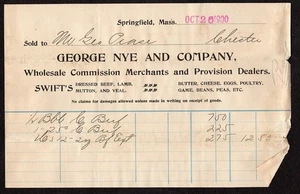 Springfield, Mass. OCT 26 1900
Sold to Mr Geo Pease Chester
GEORGE NYE AND COMPANY,
Wholesale Commission Merchants and Provision Dealers.
SWIFT'S DRESSED BEEF, LAMB, MUTTON, AND VEAL. BUTTER, CHEESE, EGGS, POULTRY, GAME, BEANS, PEAS, ETC.
No claims for damages allowed unless made in writing on receipt of goods.
Bbl C Beef 750
1 25 C Beef 225
12 2 oz Bf Ext 275 12 50